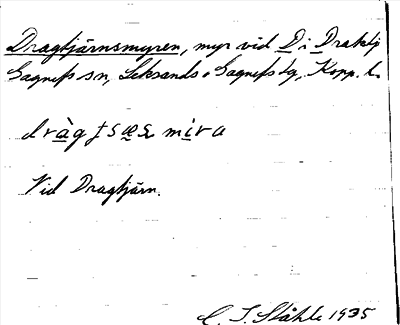 Dragtjärnsmyren, myr vid D i
Gagnefs sn, Leksands o Gagnefs tg, Kopp. l.
dràgtsææ mìra
Vid Dragtjärn.
C. I. Ståhle 1935